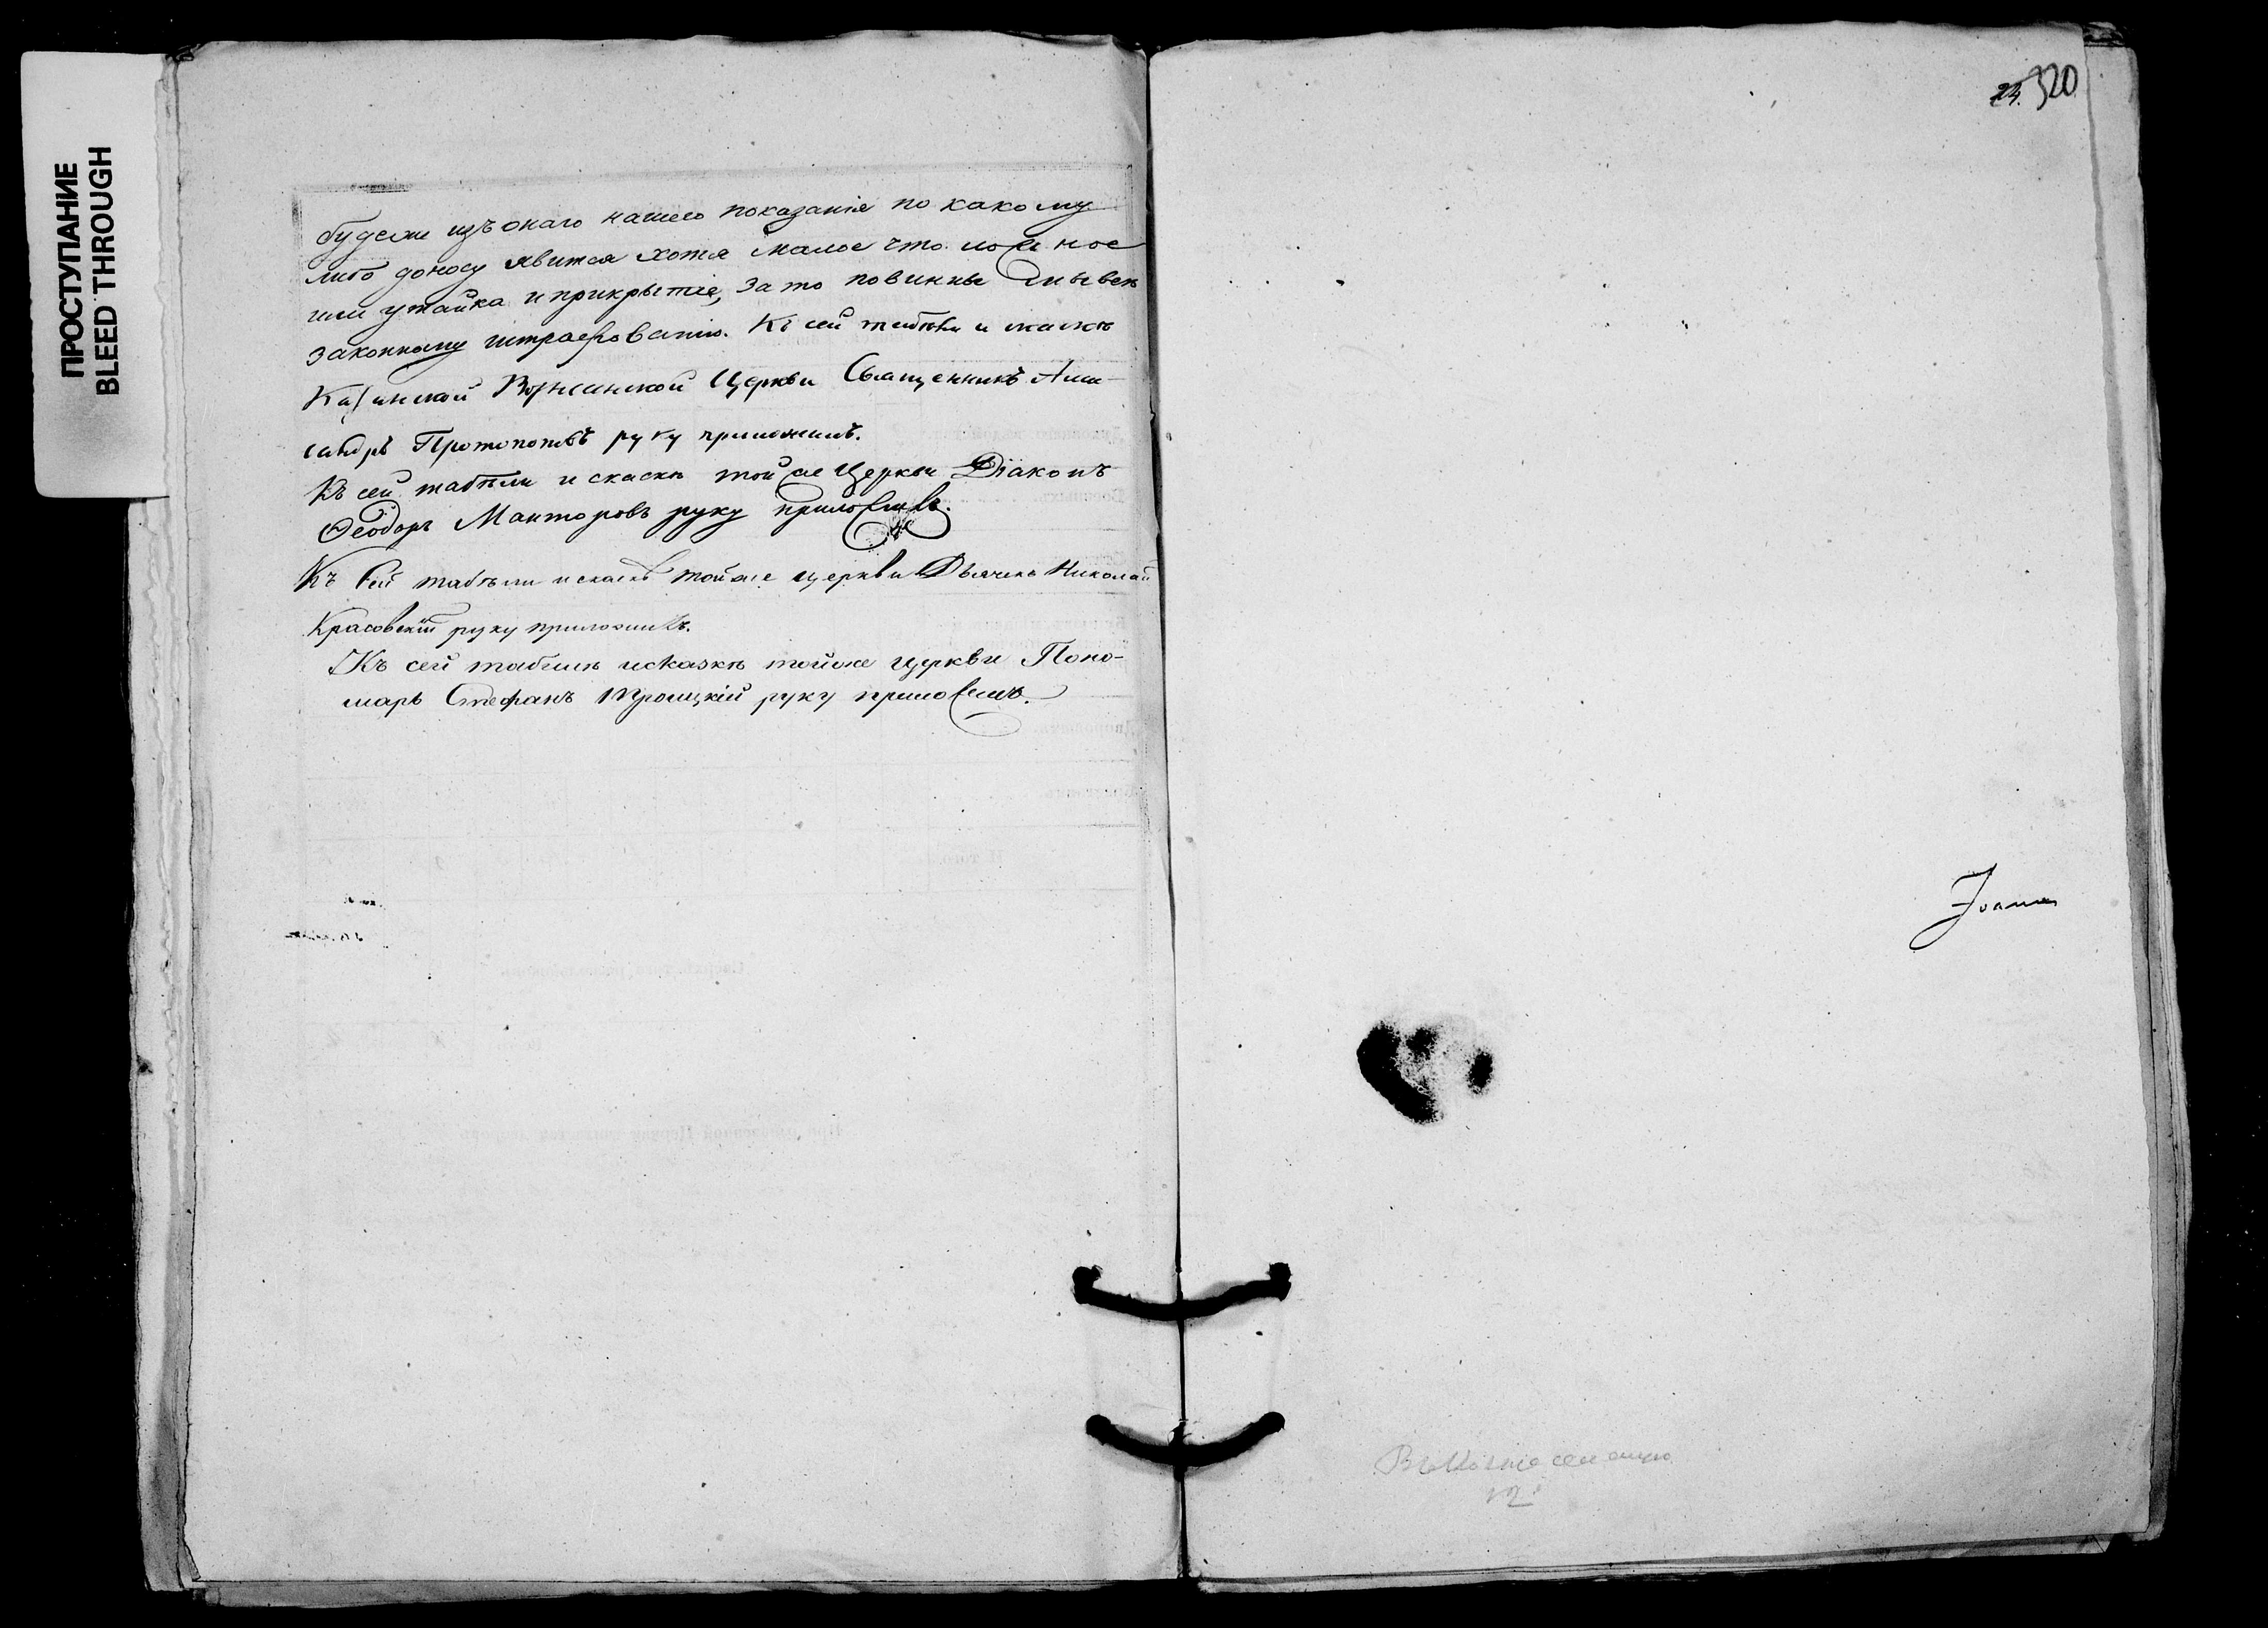 ПРОСТУПАНИЕ
BLEED THROUGH
24. 320
будеже изъ онаго нашего показанія по какому
либо доносу явится хотя малое что ложное
или утайка и прикрытіе, за то повинны
законному штрафованію. Къ сей табѣли и скаскѣ
Вознесенской Церкви Священникъ Алек-
сандръ Протопоповъ руку приложилъ.
Къ сей табѣли и скаскѣ той же Церкви Діаконъ
Ѳеодоръ Манторовъ руку приложилъ.
Къ сей табѣли и скаскѣ тойже церкви Дьячекъ Николай
Красовскій руку приложилъ.
Къ сей табели и сказкѣ тойже церкви Поно-
марь Стефанъ Троицкій руку приложилъ.